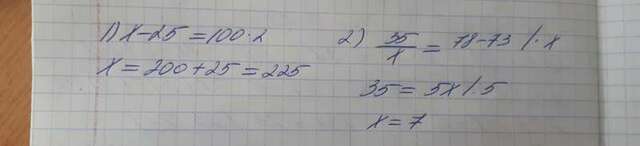 1) x-25=100·2
x=200+25=225
2) 35/x = 78-73 /·x
35 = 5x /:5
x=7